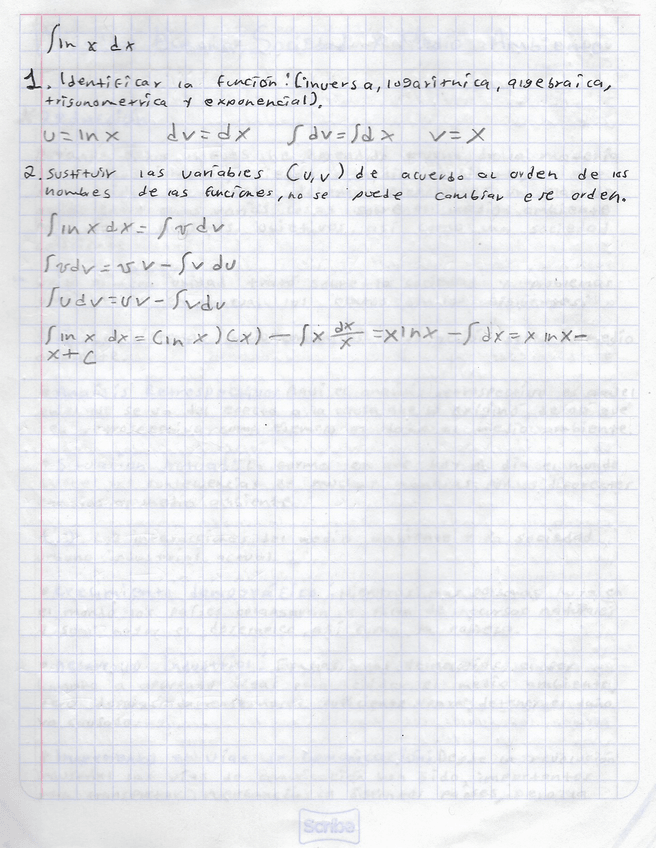 ∫ln x dx
1. Identificar la función: (inversa, logaritmica, algebraica,
trigonometrica y exponencial).
u = ln x dv = dx ∫dv = ∫dx v = x
2. Sustituir las variables (u, v) de acuerdo al orden de los
nombres de las funciones, no se puede cambiar ese orden.
∫ln x dx = ∫v dv
∫vdv = v v - ∫v du
∫u dv = uv - ∫vdu
∫ln x dx = (ln x)(x) - ∫x dx/x = x ln x - ∫dx = x ln x -
x + C
Scribe